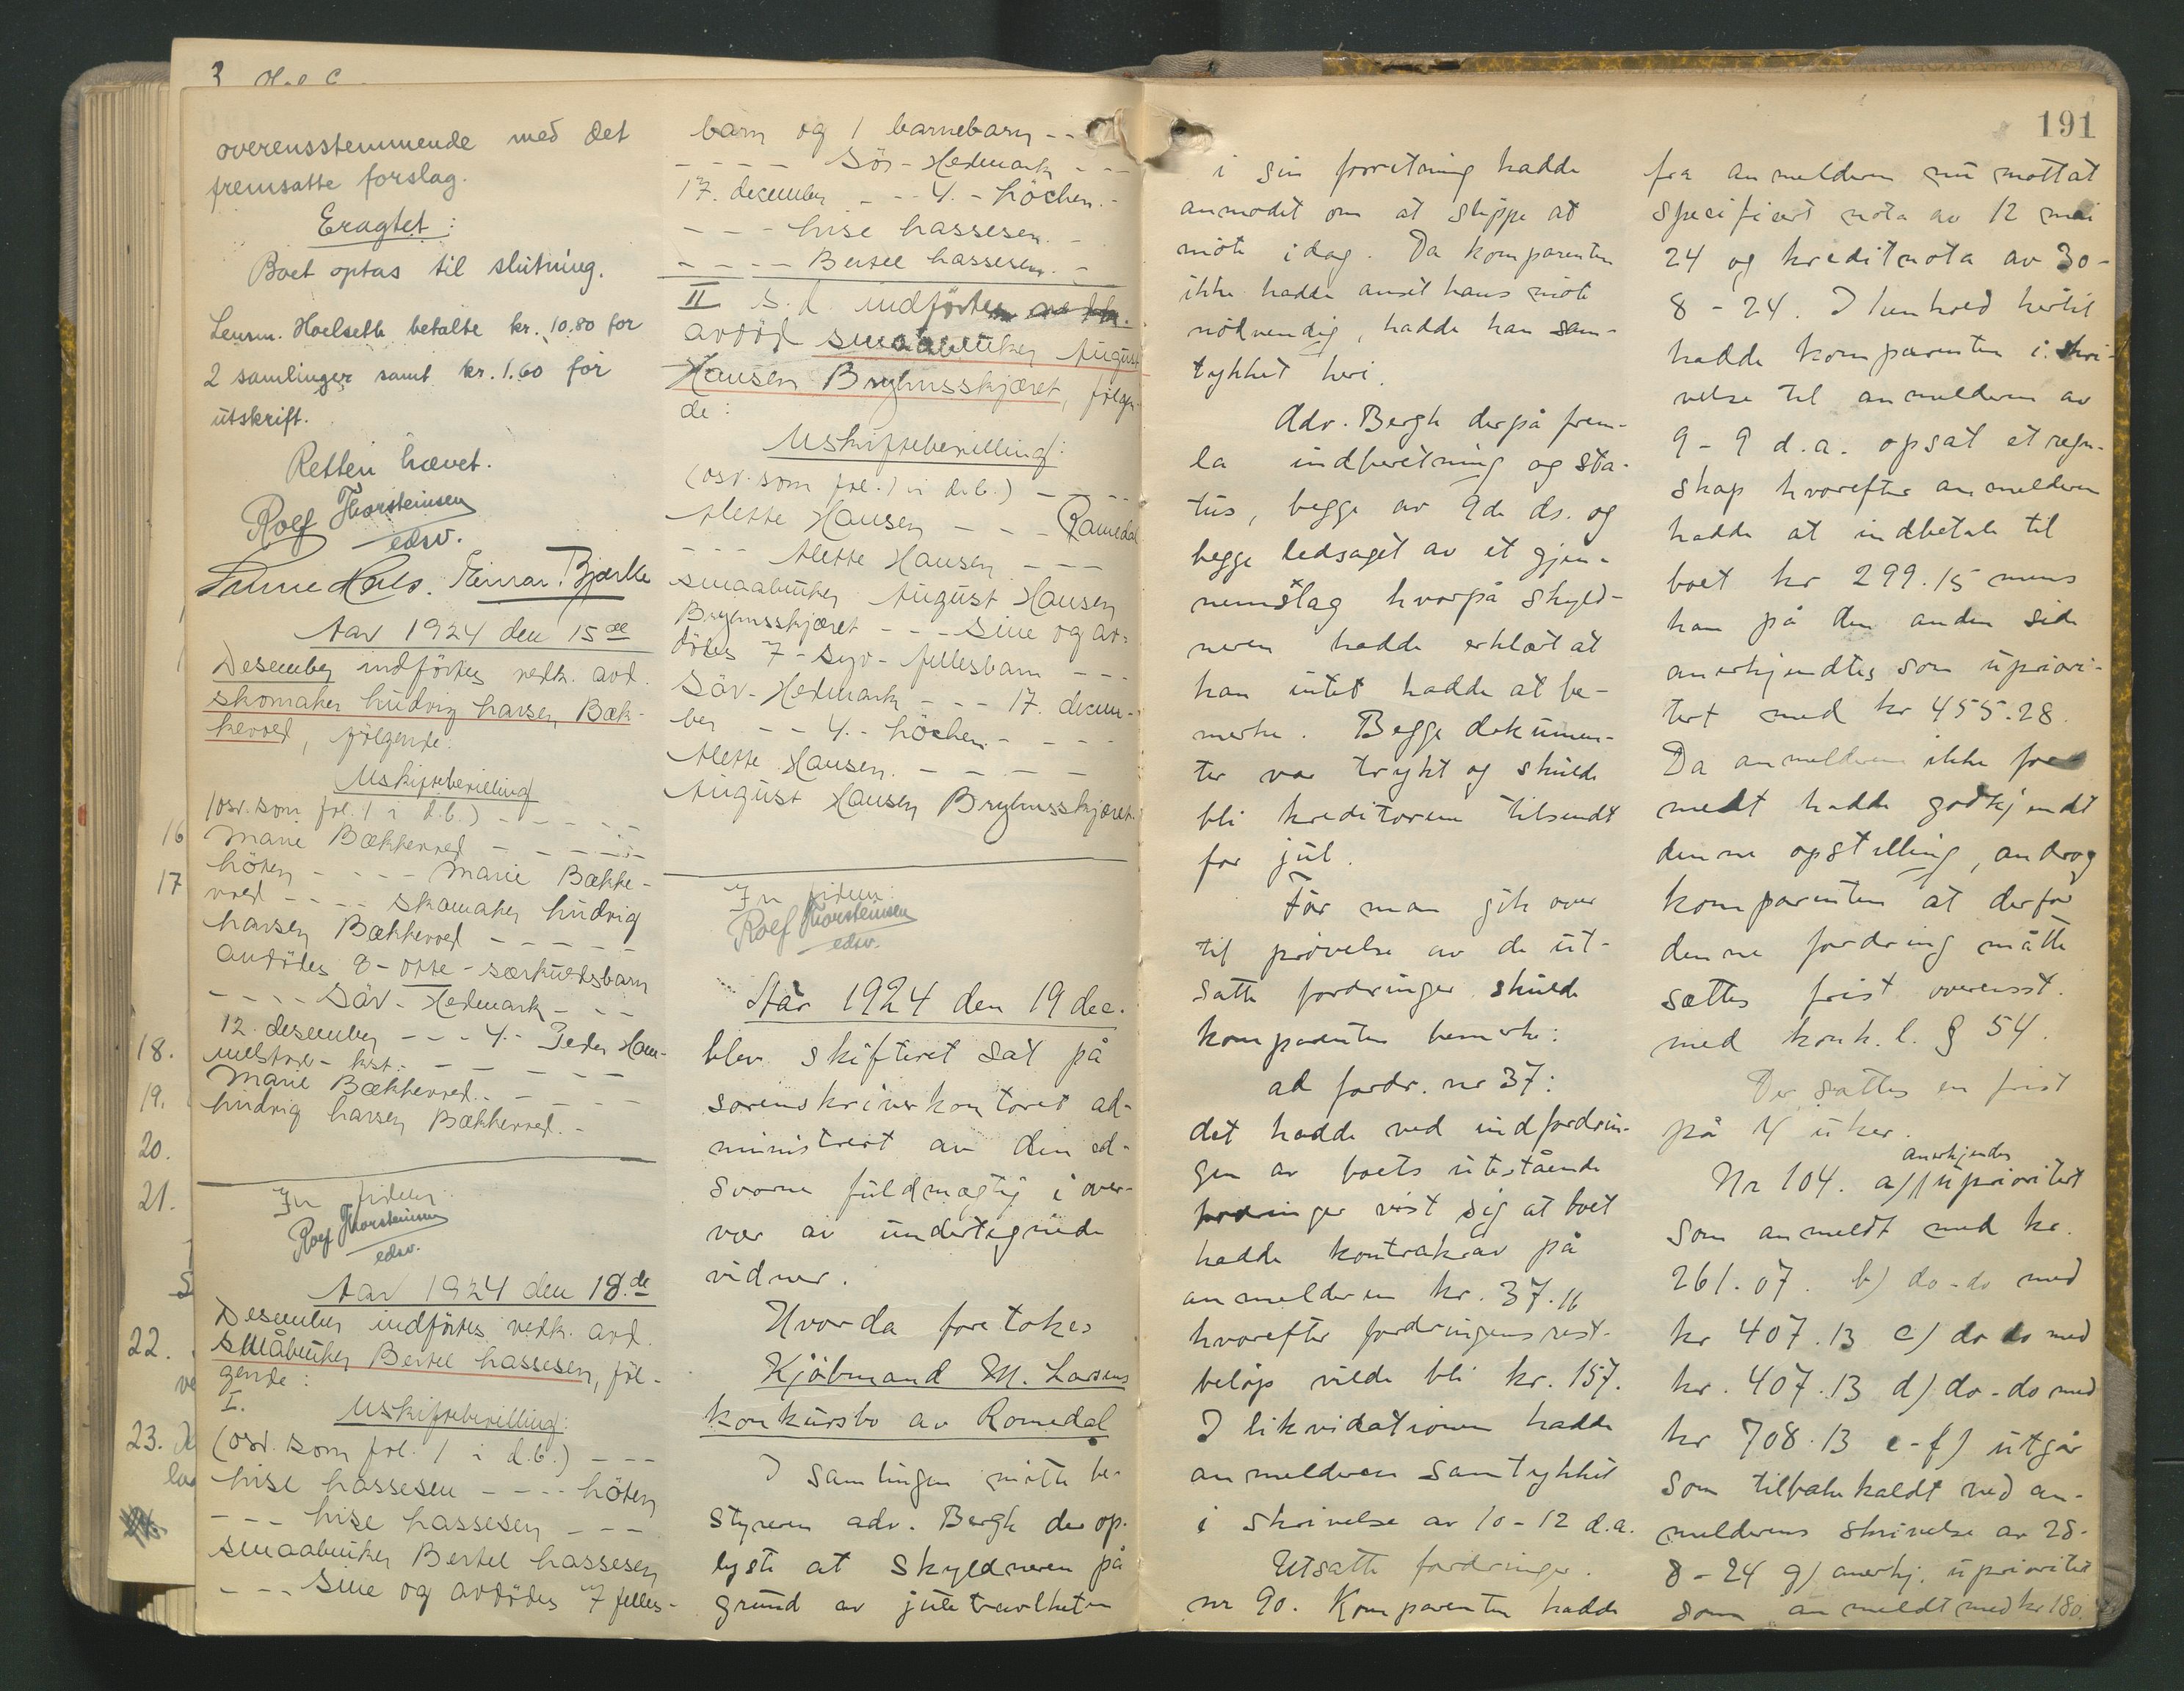 overensstemmende med det
fremsatte forslag.
Eragtet:
Boet optas til slutning.
Lensm. Hoelseth betalte kr. 10.80 for
2 samlinger samt kr. 1.60 for
utskrift.
Retten hævet.
Rolf Thorsteinsen
edsv.
Einar Bjerke
Aar 1924 den 15de
Desember indförtes vedk. avd.
skomaker Ludvig Larsen Bæk-
kevold, følgende:
Uskiftebevilling
(osv. som fol. 1 i d.b.) - - - - -
Marie Bækkevold - - - - -
Löten - - - - Marie Bække-
vold - - - - skomaker Ludvig
Larsen Bækkevold - - - - -
avdödes 8 - otte - særkuldsbarn
- - - - Sör-Hedmark - - -
12. desember - - - 4. - Peder Ham-
melstad - kst. - - - - -
Marie Bækkevold. - - - - -
Ludvig Larsen Bækkevold. -
In fidem:
Rolf Thorsteinsen
edsv.
Aar 1924 den 18.de
Desember indförtes vedk. avd.
småbruker Bertel Lassesen, föl-
gende:
I.
Uskiftebevilling:
(osv. som fol. 1 i d.b.) - - -
Lise Lassesen - - - - Löten
- - - Lise Lassesen - - -
smaabruker Bertel Lassesen
- - - sine og avdödes 7 felles-
barn og 1 barnebarn - -
- - - - Sör-Hedmark - - -
17. december - - - 4. - Löchen. -
- - - Lise Lassesen. -
- - - - Bertel Lassesen. -
II s.d. indförtes
avdöd smaabruker August
Hansen Bryhnsskjæret, følgen-
de:
Uskiftebevilling:
(osv. som fol. 1 i d.b.) - - - -
Mette Hansen - - - Romedal
- - - Mette Hansen - - -
smaabruker August Hansen
Bryhnsskjæret - - - sine og av-
dödes 7 - syv - fellesbarn - - -
Sör-Hedmark - - - 17. decem-
ber - - 4. - Löchen. - - - -
Mette Hansen. - - - - -
August Hansen Bryhnsskjæret.
In fidem:
Rolf Thorsteinsen
edsv.
År 1924 den 19 dec.
blev skifteret sat på
sorenskriverkontoret ad-
ministrert av den ed-
svorne fuldmægtig i over-
vær av undertegnede
vidner.
Hvorda foretokes
Kjöbmand M. Larsens
konkursbo av Romedal
I samlingen mötte be-
styreren adv. Bergh der op-
lyste at skyldneren på
grund av juletravlheten
191
i sin forretning hadde
anmodet om at slippe at
möte idag. Da komparenten
ikke hadde anset hans möte
nödvendig, hadde han sam-
tykket heri.
Adv. Bergh derpå frem-
la indberetning og sta-
tus, begge av 9de ds. og
begge ledsaget av et gjen-
nemslag hvorpå skyld-
neren hadde erklært at
han intet hadde at be-
merke. Begge dokumen-
ter var trykt og skulde
bli kreditorene tilsendt
før jul.
Før man gik over
til prövelse av de ut-
satte fordringer skulde
komparenten bemerke:
ad fordr. nr 37:
det hadde ved indfordrin-
gen av boets utestående
fordringer vist sig at boet
hadde kontrakrav på
anmelderen kr. 37.16
hvorefter fordringens rest-
belöp vilde bli kr. 157.
I likvidationen hadde
anmelderen samtykket
i skrivelse av 10-12 d.a.
Utsatte fordringer.
nr 90. Komparenten hadde
fra anmelderen nu mottat
specifisert nota av 12 mai
24 og kreditnota av 30-
8-24. I henhold hertil
hadde komparenten i skri-
velse til anmelderen av
9-9 d.a. opsat et regn-
skap hvorefter anmelderen
hadde at indbetale til
boet kr 299.15 mens
han på den anden side
anerkjendtes som upriori-
tert med kr 455.28.
Da anmelderen ikke for-
melt hadde godkjendt
denne opstilling, androg
komparenten at der for
denne fordring måtte
sættes frist overensst.
med konk. l. § 54.
Der sattes en frist
på 4 uker.
anerkjendes
Nr 104. a) uprioritert
som anmeldt med kr.
261.07. b) do-do med
kr 407.13 c) do do med
kr. 407.13 d) do-do med
kr 708.13 e-f) utgår
som tilbakekaldt ved an-
melderens skrivelse av 28-
8-24 g) anerkj. uprioritert
som anmeldt med kr 180.
16
17
18.
19.
20.
21.
22.
23.